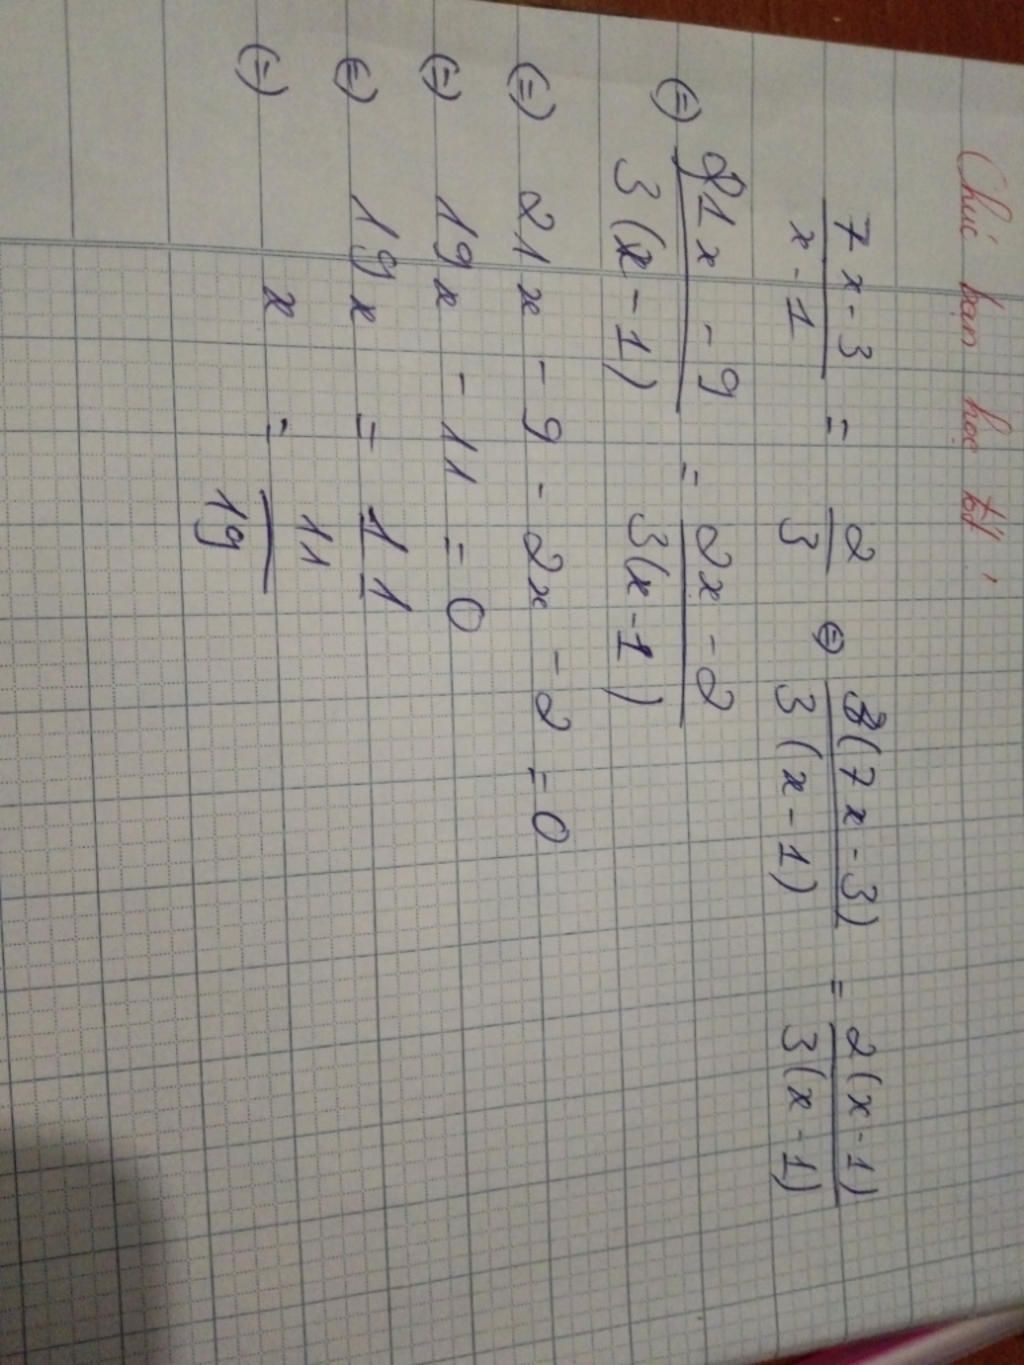 Chúc bạn học tốt !
7x - 3 / x - 1 = 2 / 3 ⇔ 3(7x - 3) / 3(x - 1) = 2(x - 1) / 3(x - 1)
⇔ 21x - 9 / 3(x - 1) = 2x - 2 / 3(x - 1)
⇔ 21x - 9 - 2x - 2 = 0
⇔ 19x - 11 = 0
⇔ 19x = 11
⇔ x = 11 / 19